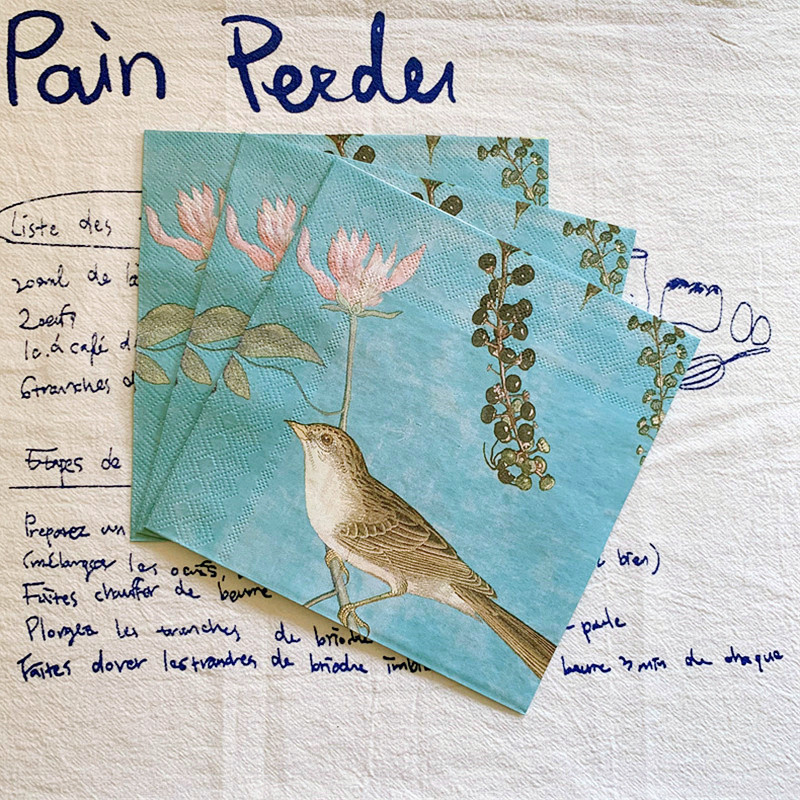 Pain Perdu
Liste des
200ml de la
2 oeufs
1c. à café d
6 tranches d
Etapes de
Préparez un
(mélanger les oeufs, bien)
Faites chauffer de beurre
Plongez les tranches de brioche
Faites dorer les tranches de brioche imbi beurre 3 min de chaque